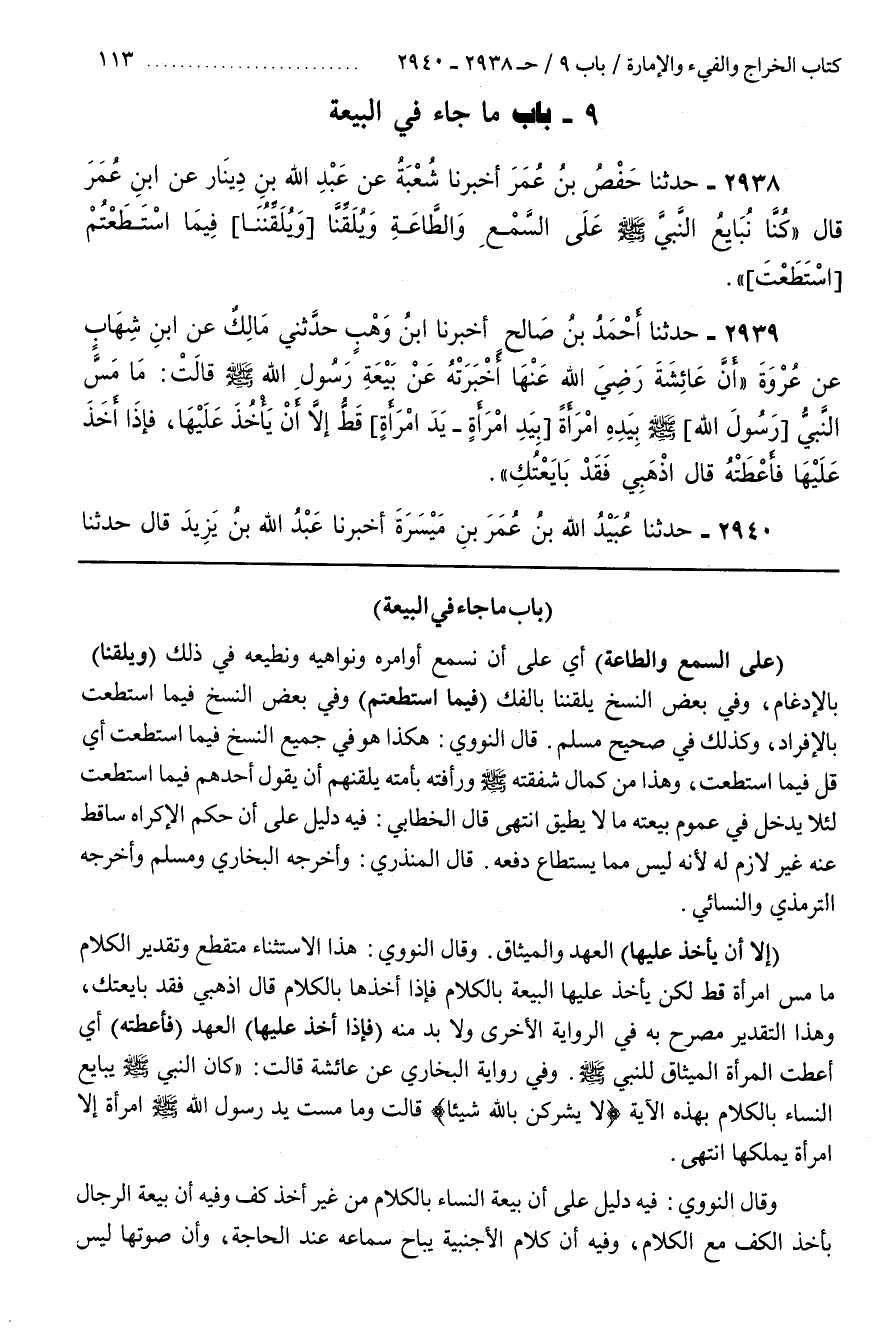 كتاب الخراج والفيء والإمارة / باب ٩ / حـ ٢٩٣٨ ـ ٢٩٤٠ .......................... ١١٣
٩ ـ باب ما جاء في البيعة
٢٩٣٨ ـ حدثنا حَفْصُ بنُ عُمَرَ أخبرنا شُعْبَةُ عن عَبْدِ الله بنِ دِينَار عن ابنِ عُمَرَ
قال «كُنَّا نُبَايِعُ النَّبيَّ ﷺ عَلَى السَّمْعِ وَالطَّاعَةِ وَيُلَقِّنَّا [وَيُلَقِّنُنَا] فِيمَا اسْتَطَعْتُمْ
[اسْتَطَعْتَ]».
٢٩٣٩ ـ حدثنا أَحْمَدُ بنُ صَالحٍ أخبرنا ابنُ وَهْبٍ حدَّثني مَالِكٌ عن ابنِ شِهَابٍ
عن عُرْوَةَ «أَنَّ عَائِشَةَ رَضِيَ الله عَنْهَا أَخْبَرَتْهُ عَنْ بَيْعَةِ رَسُولِ الله ﷺ قالَتْ: مَا مَسَّ
النَّبيُّ [رَسُولَ الله] ﷺ بِيَدِهِ امْرَأَةً [بِيَدِ امْرَأَةٍ ـ يَدَ امْرَأَةٍ] قَطُّ إلَّا أَنْ يَأْخُذَ عَلَيْهَا، فإذَا أَخَذَ
عَلَيْهَا فأَعْطَتْهُ قال اذْهَبِي فَقَدْ بَايَعْتُكِ».
٢٩٤٠ ـ حدثنا عُبَيْدُ الله بنُ عُمَرَ بنِ مَيْسَرَةَ أخبرنا عَبْدُ الله بنُ يَزِيدَ قال حدثنا
(باب ما جاء في البيعة)
(على السمع والطاعة) أي على أن نسمع أوامره ونواهيه ونطيعه في ذلك (ويلقنا)
بالإدغام، وفي بعض النسخ يلقننا بالفك (فيما استطعتم) وفي بعض النسخ فيما استطعت
بالإفراد، وكذلك في صحيح مسلم. قال النووي: هكذا هو في جميع النسخ فيما استطعت أي
قل فيما استطعت، وهذا من كمال شفقته ﷺ ورأفته بأمته يلقنهم أن يقول أحدهم فيما استطعت
لئلا يدخل في عموم بيعته ما لا يطيق انتهى قال الخطابي: فيه دليل على أن حكم الإكراه ساقط
عنه غير لازم له لأنه ليس مما يستطاع دفعه. قال المنذري: وأخرجه البخاري ومسلم وأخرجه
الترمذي والنسائي.
(إلا أن يأخذ عليها) العهد والميثاق. وقال النووي: هذا الاستثناء متقطع وتقدير الكلام
ما مس امرأة قط لكن يأخذ عليها البيعة بالكلام فإذا أخذها بالكلام قال اذهبي فقد بايعتك،
وهذا التقدير مصرح به في الرواية الأخرى ولا بد منه (فإذا أخذ عليها) العهد (فأعطته) أي
أعطت المرأة الميثاق للنبي ﷺ. وفي رواية البخاري عن عائشة قالت: «كان النبي ﷺ يبايع
النساء بالكلام بهذه الآية ﴿لا يشركن بالله شيئا﴾ قالت وما مست يد رسول الله ﷺ امرأة إلا
امرأة يملكها انتهى.
وقال النووي: فيه دليل على أن بيعة النساء بالكلام من غير أخذ كف وفيه أن بيعة الرجال
بأخذ الكف مع الكلام، وفيه أن كلام الأجنبية يباح سماعه عند الحاجة، وأن صوتها ليس